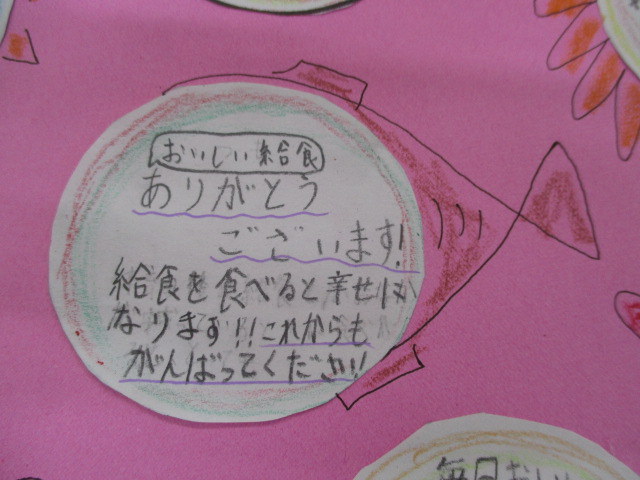 おいしい給食
ありがとう
ございます!
給食を食べると幸せに
なります!!これからも
がんばってください!!
毎日おいし